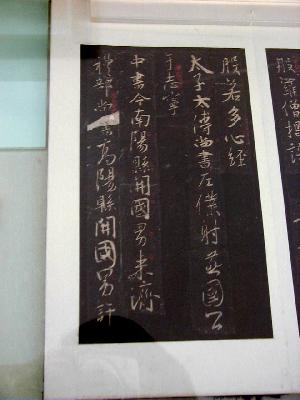 般羅僧揭諦
般若多心經
太子太傅尚書左僕射燕國公
于志寧
中書令南陽縣開國男来濟
禮部尚書高陽縣開國男許